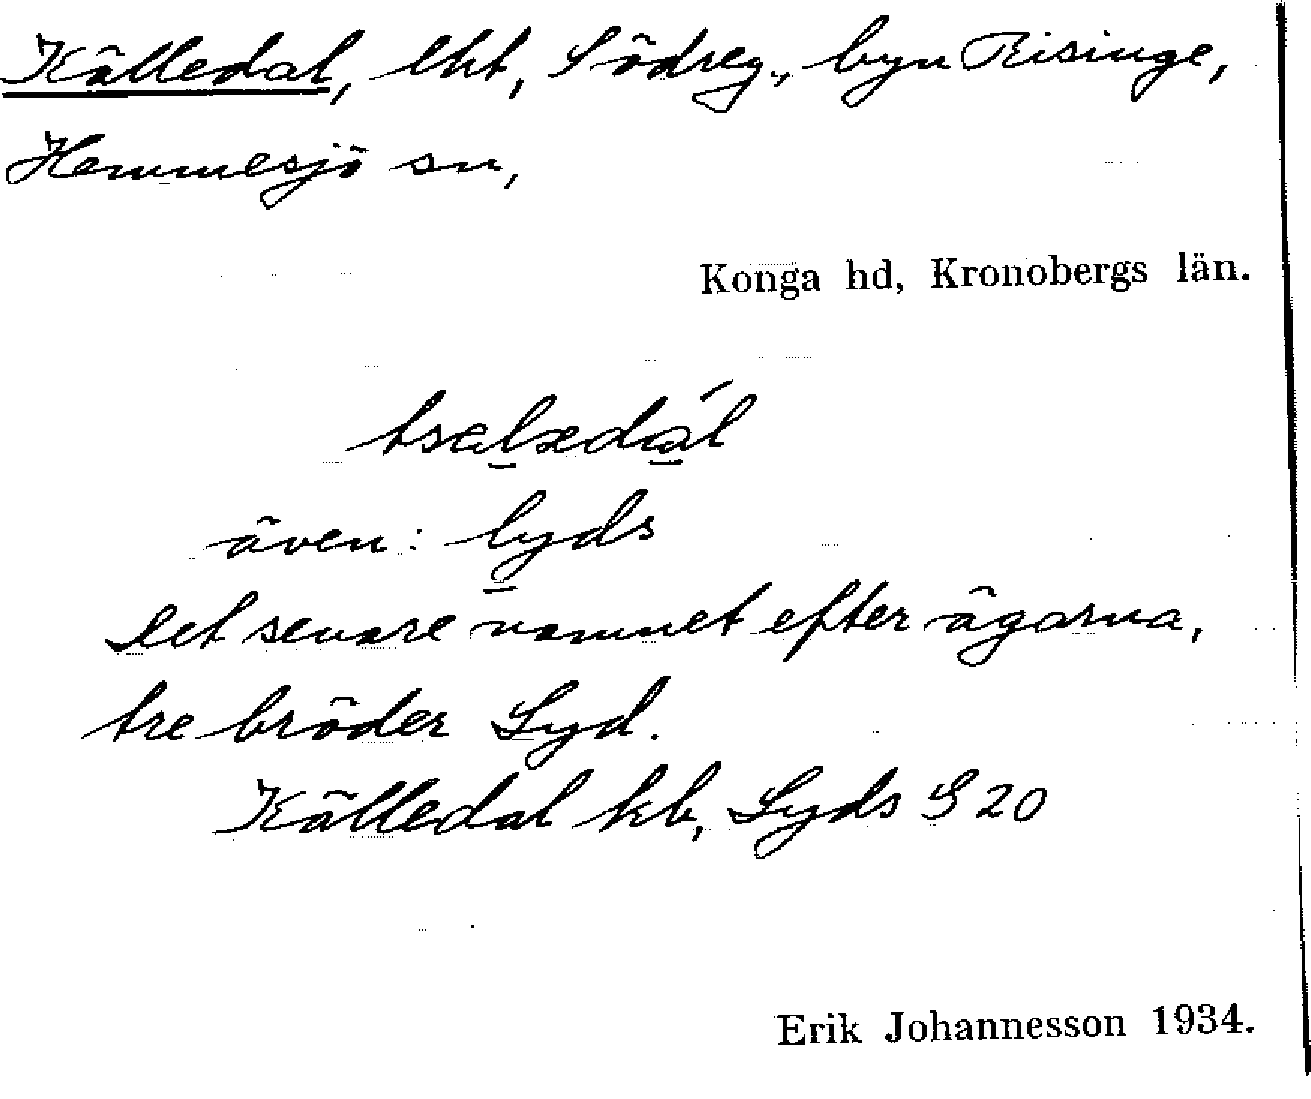 Källedal, lht, Södreg., byn Risinge,
Hemmesjö sn,
Konga hd, Kronobergs län.
tsælædál
även: lyds
Det senare namnet efter ägarna,
tre bröder Lyd.
Källedal kb, Lyds G 20
Erik Johannesson 1934.